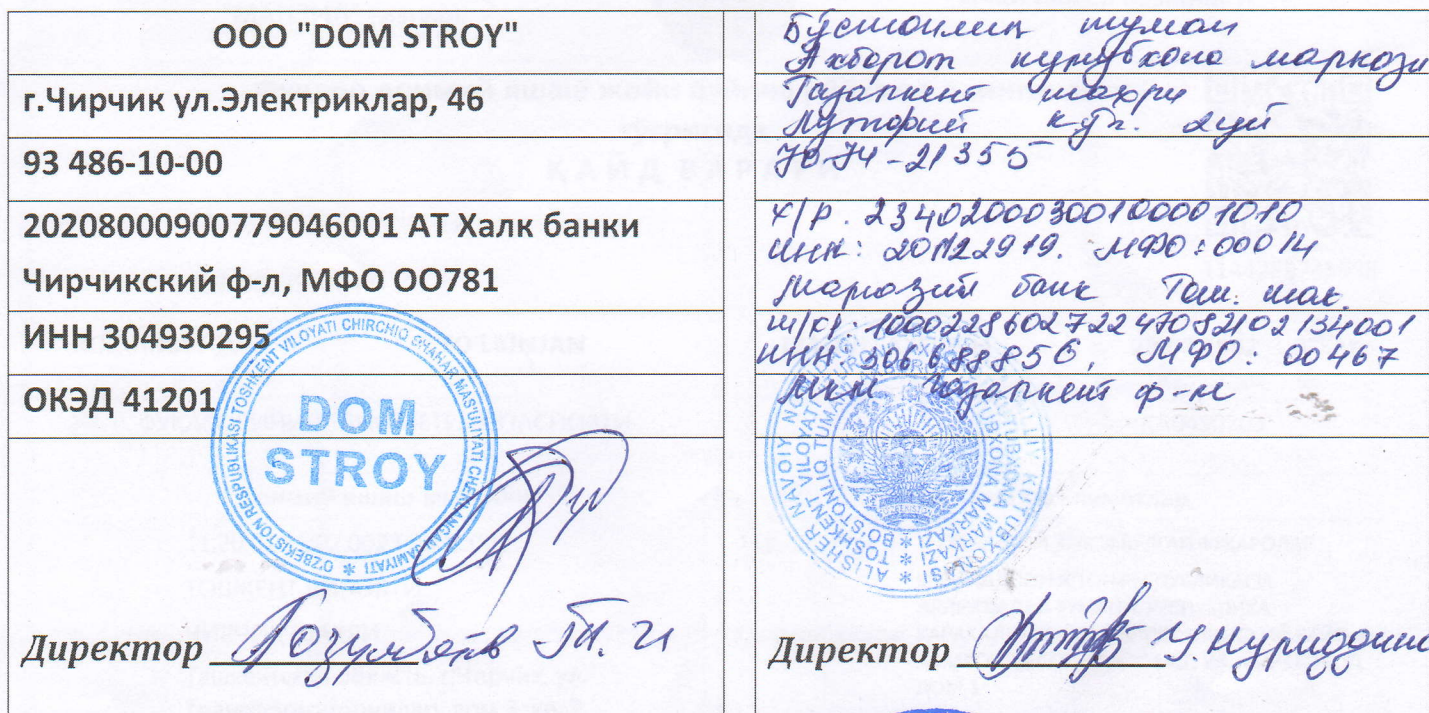 ООО "DOM STROY"
г.Чирчик ул.Электриклар, 46
93 486-10-00
20208000900779046001 АТ Халк банки
Чирчикский ф-л, МФО ОО781
ИНН 304930295
ОКЭД 41201
OZBEKISTON RESPUBLIKASI TOSHKENT VILOYATI CHIRCHIQ SHAHAR MAS'ULIYATI CHEKLANGAN JAMIYATI *
DOM
STROY
Директор
Бўстонлиқ туман
Ахборот кутубхона маркази
Ғазалкент шахри
Лутфорий кўч. 2 уй
70-74-21355
Х/р. 23402000300100001010
инн: 201122919. МФО: 00014
Марказий банк Тош. шах.
ш/х/р. 100022860272247082102134001
инн 306688856, МФО: 00467
Ғазалкент ф-л
ALISHER NAVOIY
TOSHKENT VILOYATI
KUTUBXONA MARKAZI
BO'STONLIQ
Директор